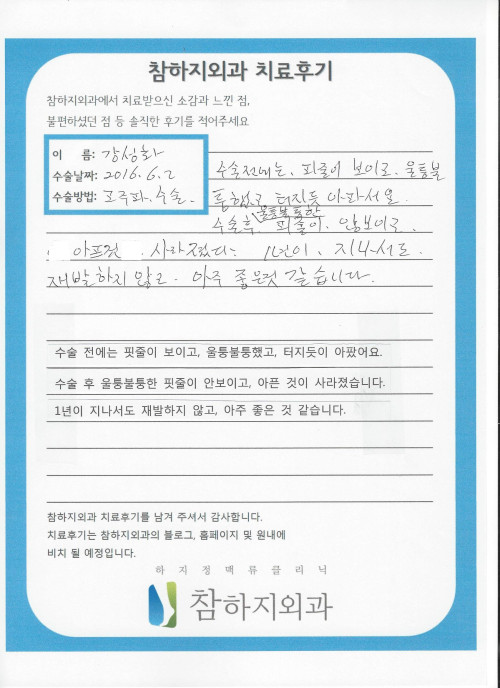 참하지외과 치료후기
참하지외과에서 치료받으신 소감과 느낀 점,
불편하셨던 점 등 솔직한 후기를 적어주세요
이 름: 강성화
수술날짜: 2016.6.2
수술방법: 고주파.수술.
수술전에는. 피줄이 보이고. 울퉁불
퉁했고 터지듯 아파서요.
수술후 울퉁불퉁한 피줄이. 안보이고.
아프것 사라졌다. 1년이. 지나서도
재발하지 않고. 아주 좋은것 같습니다.
수술 전에는 핏줄이 보이고, 울퉁불퉁했고, 터지듯이 아팠어요.
수술 후 울퉁불퉁한 핏줄이 안보이고, 아픈 것이 사라졌습니다.
1년이 지나서도 재발하지 않고, 아주 좋은 것 같습니다.
참하지외과 치료후기를 남겨 주셔서 감사합니다.
치료후기는 참하지외과의 블로그, 홈페이지 및 원내에
비치 될 예정입니다.
하지정맥류클리닉
참하지외과